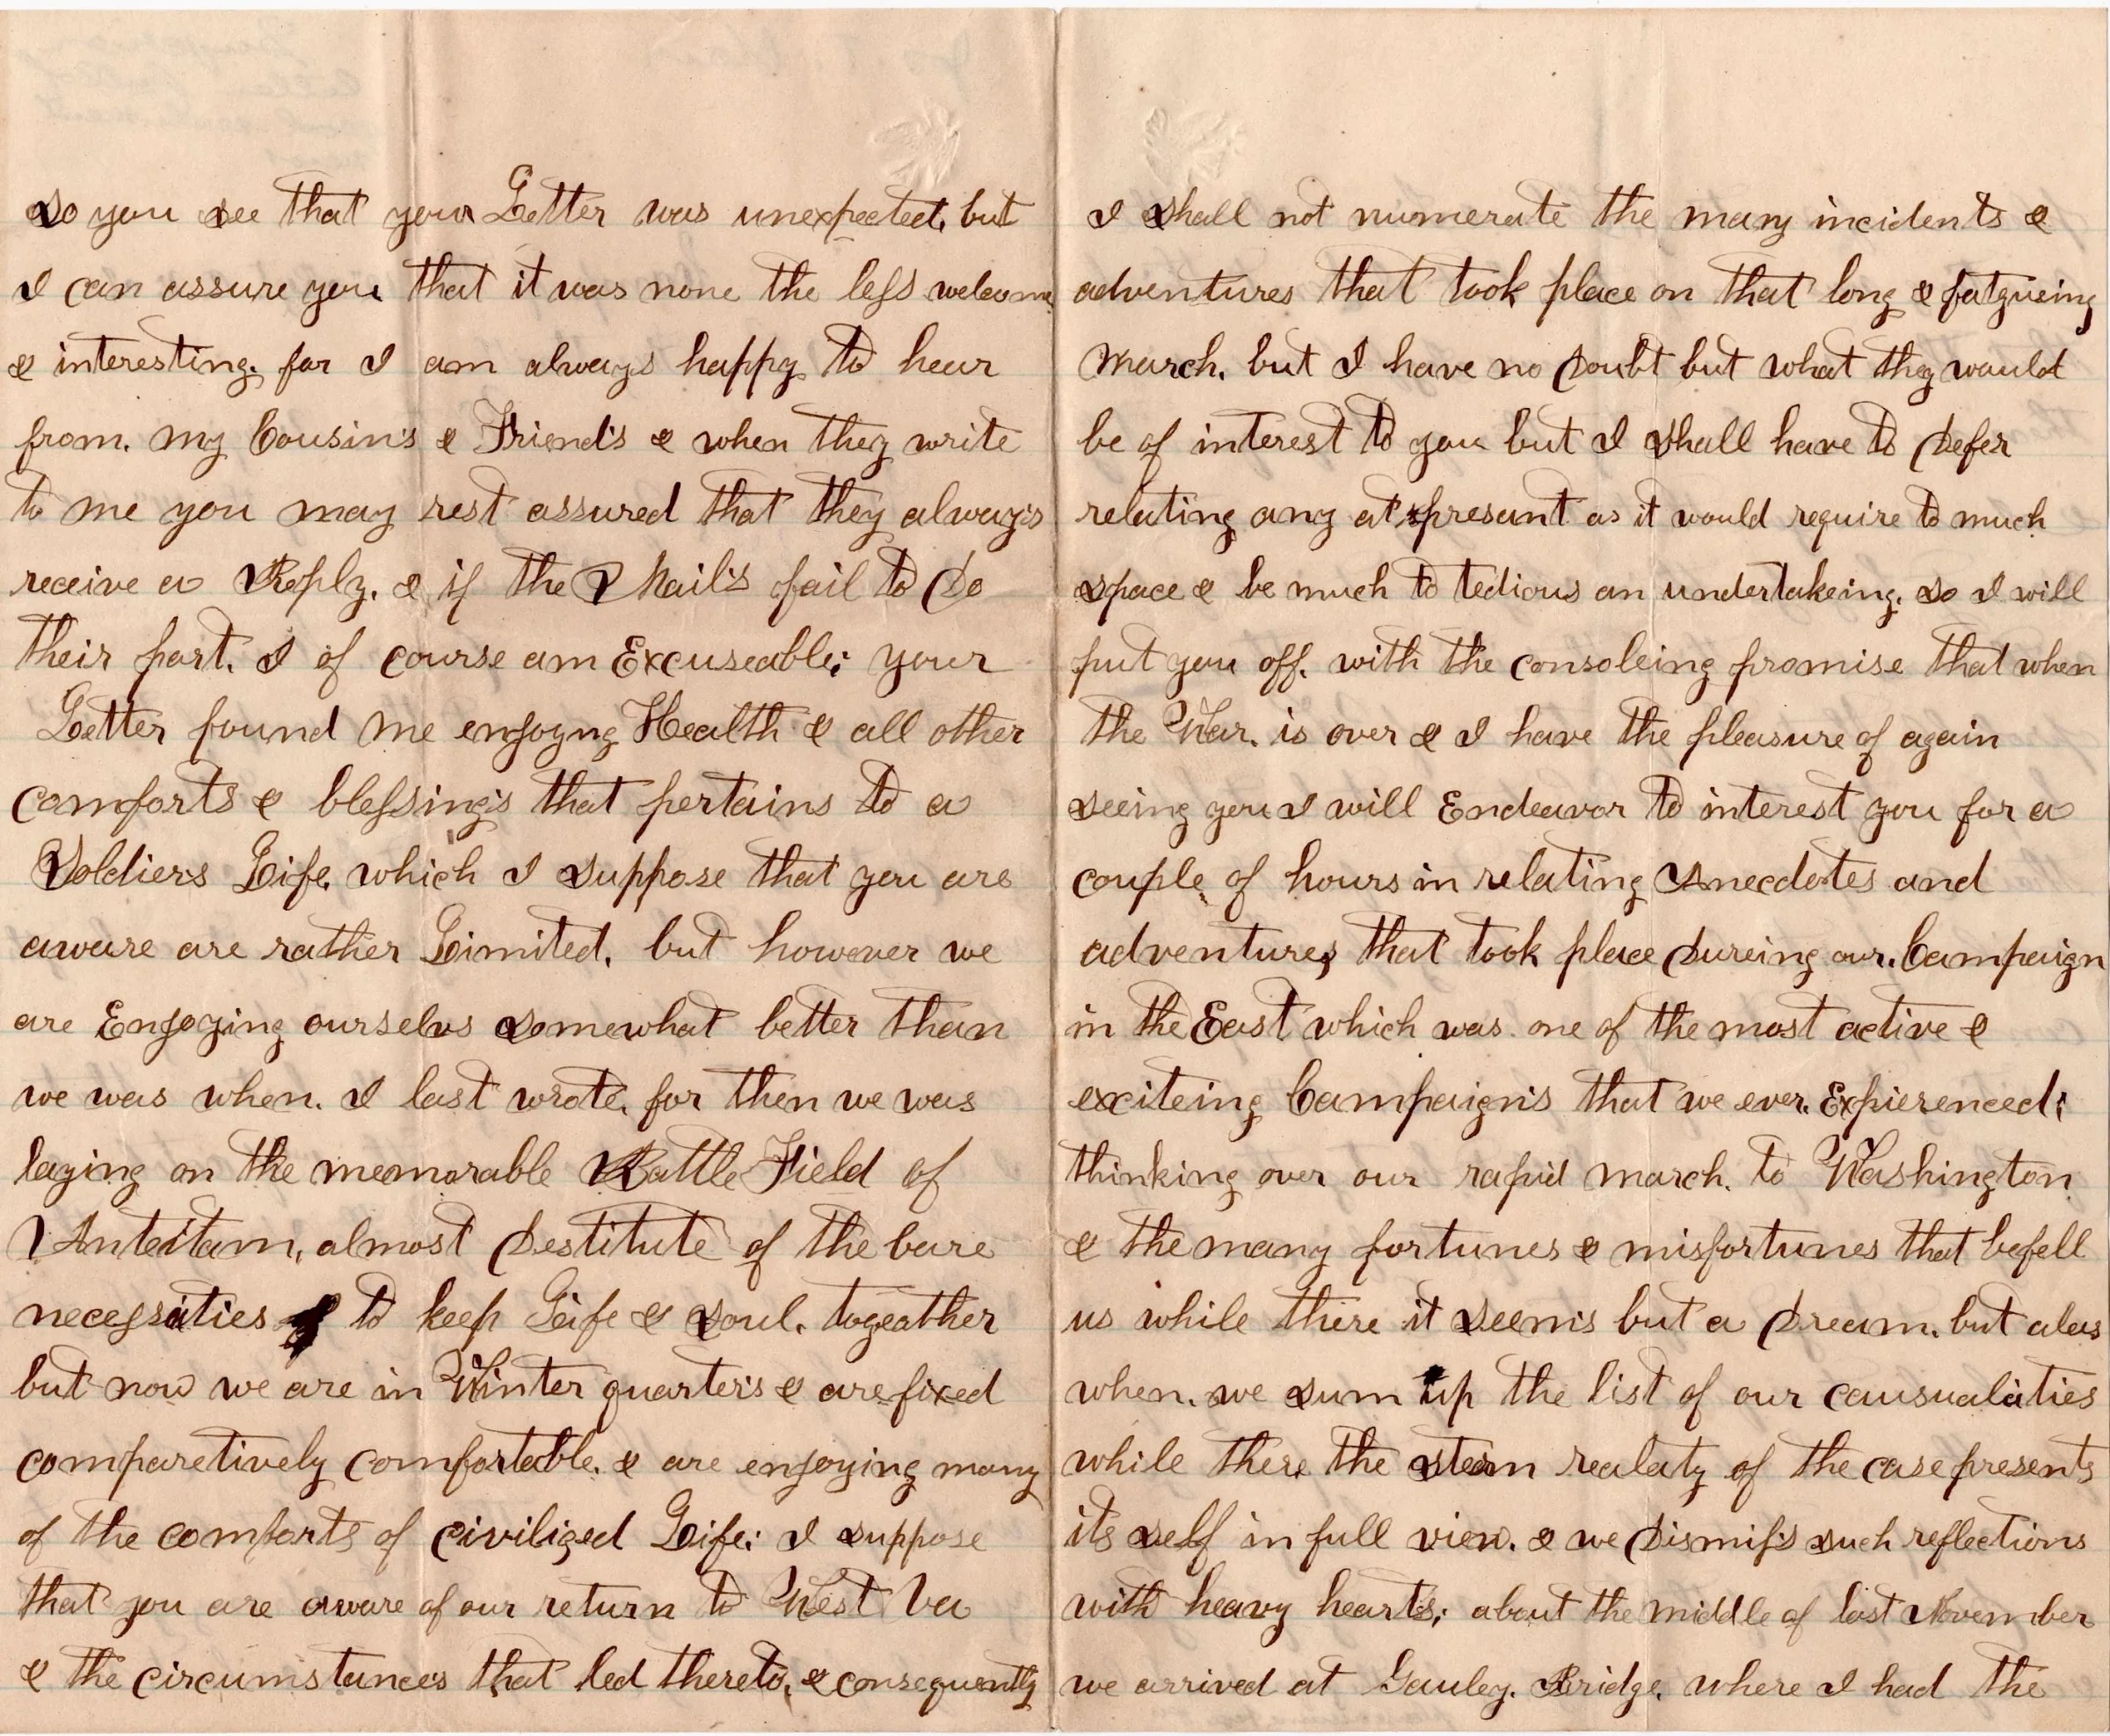 so you see that your Letter was unexpected, but
I can assure you that it was none the less welcome
& interesting. for I am always happy to hear
from. my Cousin's & Friend's & when they write
to me you may rest assured that they always
receive a Reply. & if the Mail's fail to Do
their part. I of course am Excuseable; your
Letter found me enjoyng Health & all other
comforts & blessing's that pertains to a
Soldiers Life. which I suppose that you are
aware are rather Limited. but however we
are Enjoying ourselvs somewhat better than
we was when. I last wrote. for then we was
laying on the memorable Battle Field of
Anteitam, almost Destitute of the bare
necessities to keep Life & soul. togeather
but now we are in Winter quarters & are fixed
comparetively comfortable. & are enjoying many
of the comforts of civilized Life: I suppose
that you are aware of our return to West Va
& the circumstances that led thereto. & consequently
I shall not numerate the many incidents &
adventures that took place on that long & fatgueing
March. but I have no Doubt but what they would
be of interest to you but I shall have to Defer
relating any at presant as it would require to much
space & be much to tedious an undertakeing. so I will
put you off. with the consoleing promise that when
the War. is over & I have the pleasure of again
seeing you I will Endeavor to interest you for a
couple of hours in relating Anecdotes and
adventures that took place Dureing our. Campaign
in the East which was one of the most active &
exciteing Campaign's that we ever. Expierenced;
thinking over our rapid march. to Washington
& the many fortunes & misfortunes that befell
us while there it seem's but a Dream. but alas
when. we sum up the list of our causualities
while there the stern realaty of the case presents
its self in full view. & we Dismiss such reflections
with heavy hearts; about the middle of last November
we arrived at Gauley. Bridge. where I had the